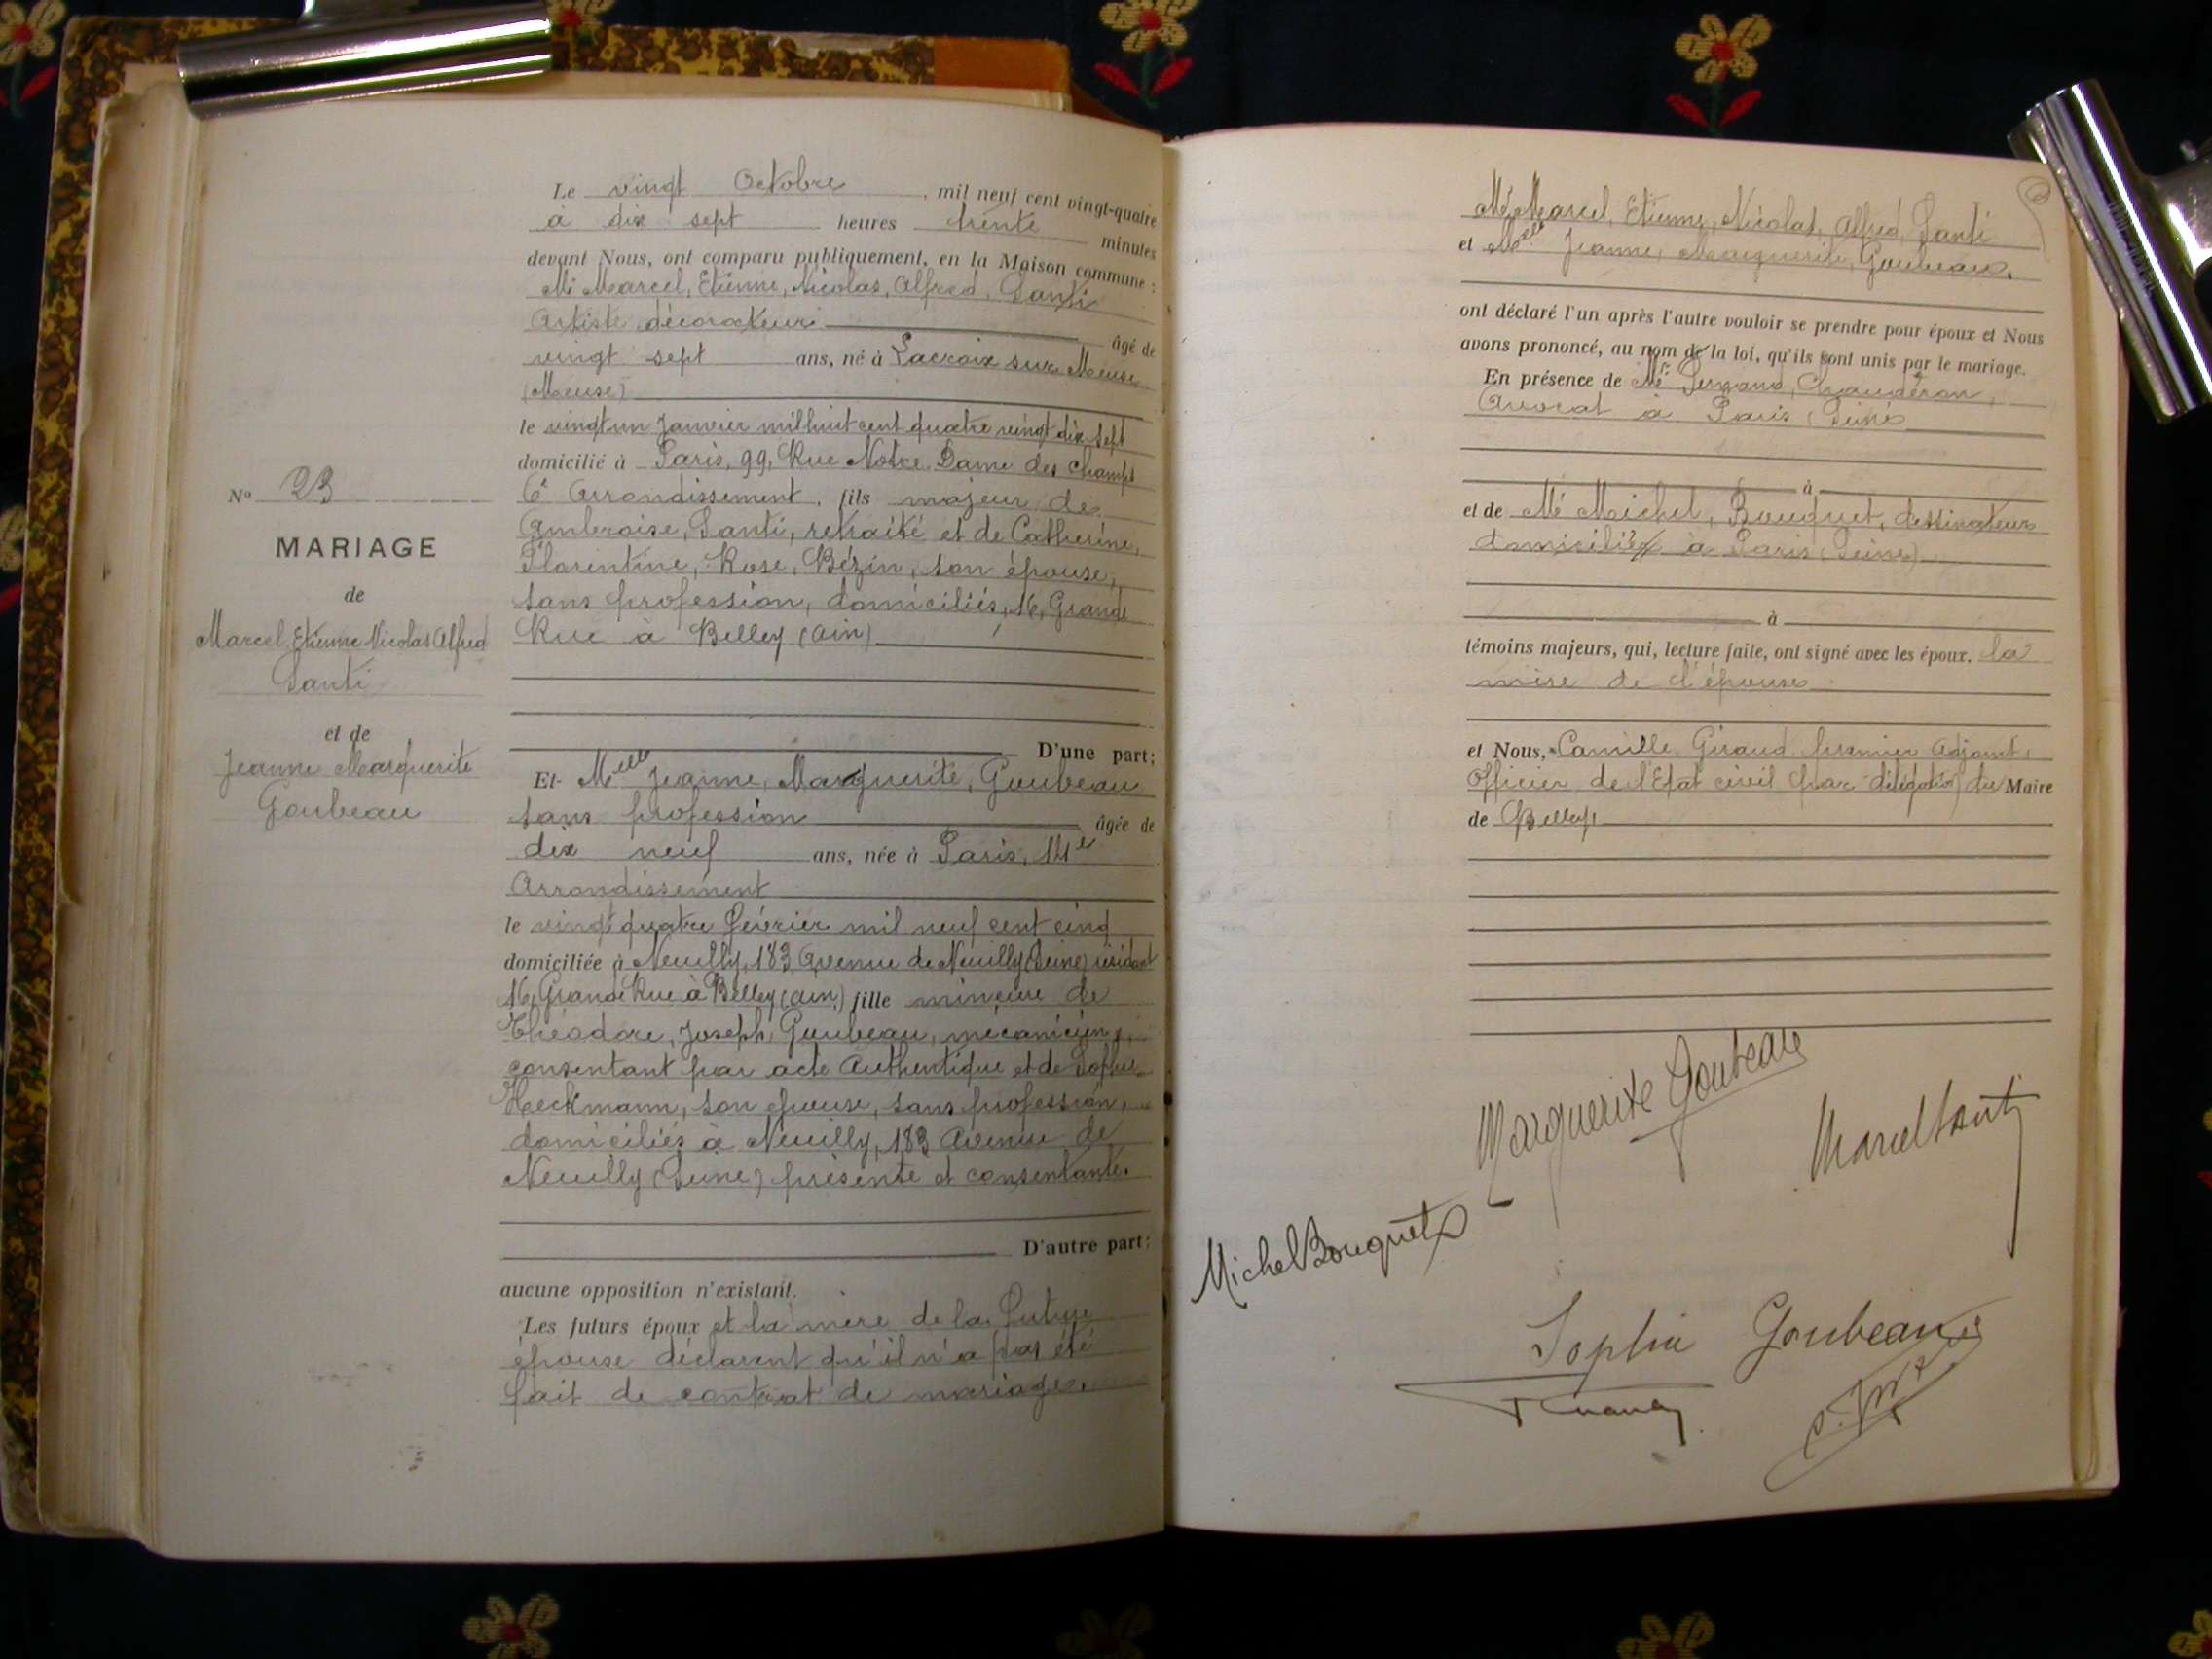 No 23
MARIAGE
de
Marcel Etienne Nicolas Alfred
Santi
et de
Jeanne Marguerite
Goubeau
Le vingt Octobre, mil neuf cent vingt-quatre
à dix sept heures trente minutes
devant Nous, ont comparu publiquement, en la Maison commune :
Mr Marcel, Etienne, Nicolas, Alfred, Santi
Artiste décorateur âgé de
vingt sept ans, né à Lacroix sur Meuse
(Meuse)
le vingt un Janvier mil huit cent quatre vingt dix sept
domicilié à Paris, 99, Rue Notre Dame des Champs
6e Arrondissement, fils majeur de
Ambroise, Santi, retraité et de Catherine,
Florentine, Rose, Bézin, son épouse,
sans profession, domiciliés, 16, Grande
Rue à Belley (Ain)
D'une part;
Et Melle Jeanne, Marguerite, Goubeau
sans profession âgée de
dix neuf ans, née à Paris,
Arrondissement
le vingt quatre Février mil neuf cent cinq
domiciliée à Neuilly, 183 Avenue de Neuilly (Seine) résidant
16, Grande Rue à Belley (Ain) fille mineure de
Théodore, Joseph, Goubeau, mécanicien,
consentant par acte Authentique et de Sophie
Heckmann, son épouse, sans profession,
domiciliés à Neuilly, 183 Avenue de
Neuilly (Seine) présente et consentante.
D'autre part;
aucune opposition n'existant.
Les futurs époux et la mère de la future
épouse déclarent qu'il n'a pas été
fait de contrat de mariage.
Mr Marcel, Etienne, Nicolas, Alfred, Santi
et Melle Jeanne, Marguerite, Goubeau.
ont déclaré l'un après l'autre vouloir se prendre pour époux et Nous
avons prononcé, au nom de la loi, qu'ils sont unis par le mariage.
En présence de Mr Fernand, Chaudéron,
Avocat à Paris (Seine)
à
et de Mr Michel, Bouquet, dessinateur
domicilié à Paris (Seine)
à
témoins majeurs, qui, lecture faite, ont signé avec les époux, la
mère de l'épouse
et Nous, Camille Giraud premier Adjoint,
Officier de l'Etat civil par délégation du Maire
de Belley,
Marguerite Goubeau
Marcel Santi
Michel Bouquet
Sophie Goubeau